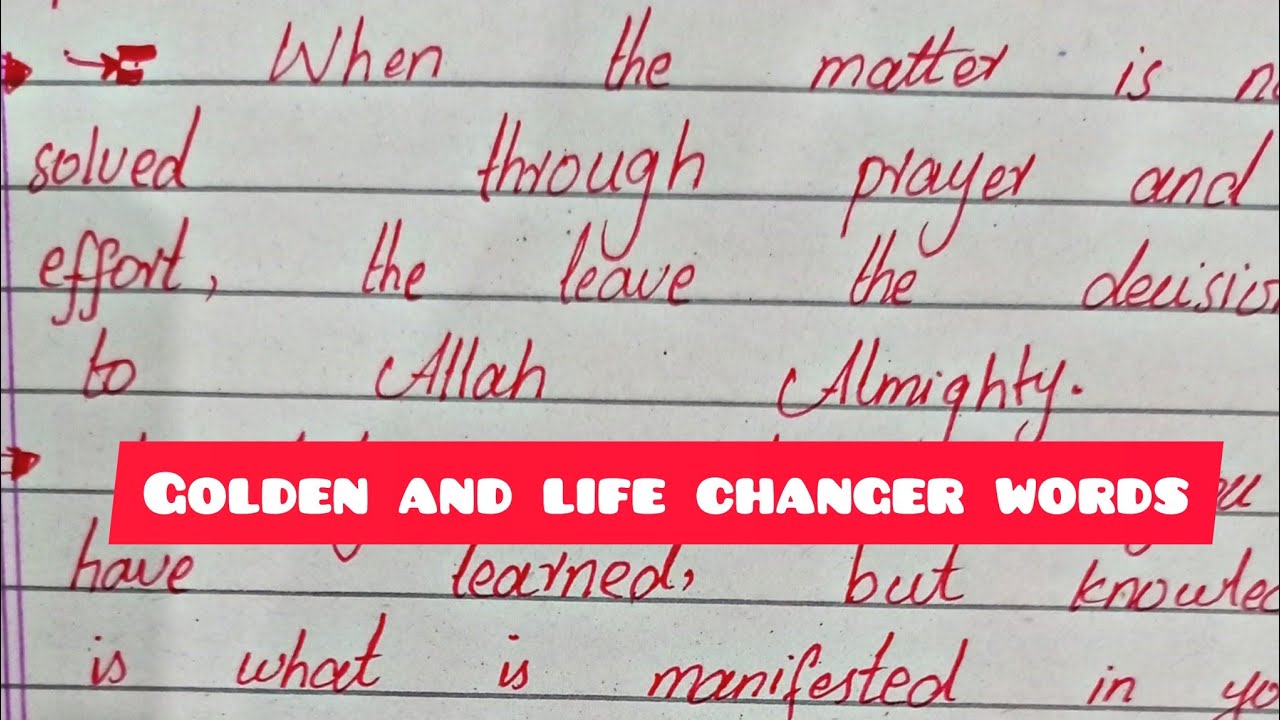 When the matter is
solved through prayer and
effort, the leave the
to Allah Almighty.
GOLDEN AND LIFE CHANGER WORDS
have learned, but
is what is manifested in